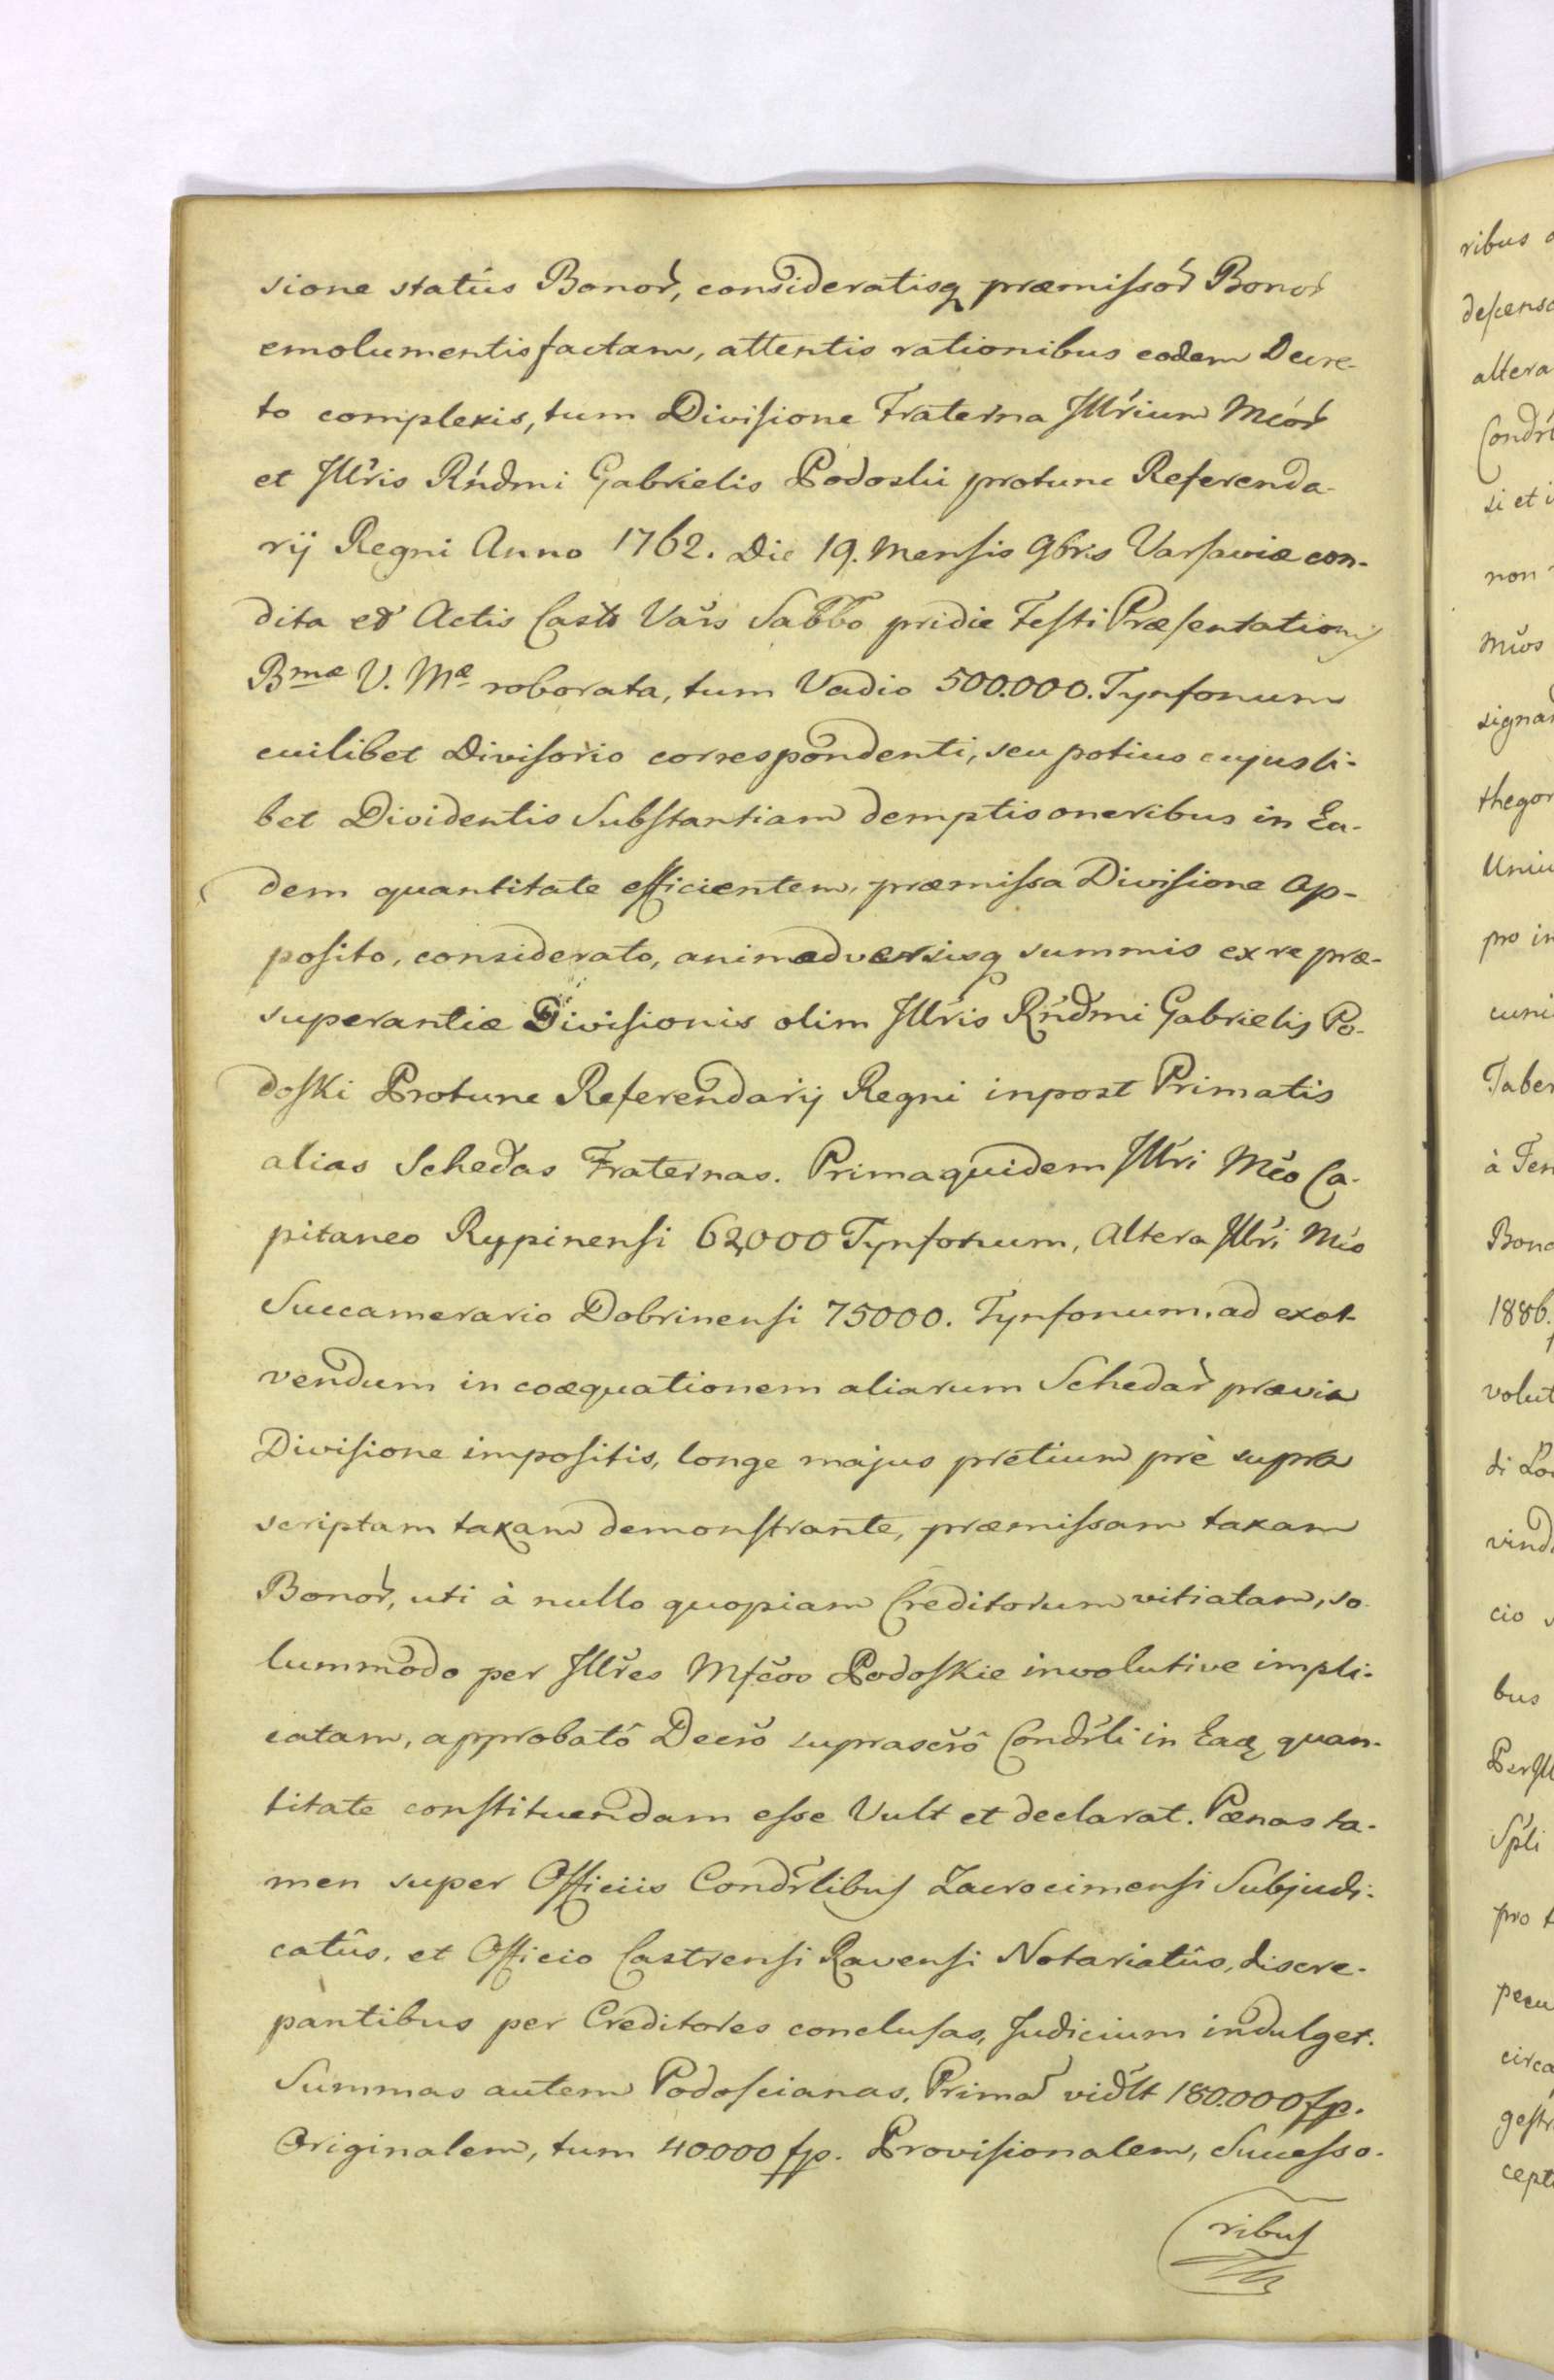 sione statûs Bonor̃, consideratisq præmissor̃ Bonor̃
emolumentis factam, attentis rationibus eodem Decre-
to complexis, tum Divisione Fraterna Jllr̃ium Mcor̃
et Jllr̃is Rńdmi Gabrielis Podoski protunc Referenda-
rij Regni Anno 1762. Die 19. Mensis 9bris Varsaviæ con-
dita et Actis Castr Vars Sabbo pridie Festi Præsentationis
Bmæ V. Mæ roborata, tum Vadio 500.000. Tynfonum
cuilibet Divisorio correspondenti, seu potius cujusli-
bet Dividentis Substantiam demptis oneribus in Ea-
dem quantitate efficientem, præmissa Divisione Ap-
posito, considerato, animadversisq summis ex re præ-
superantiæ Divisionis olim Jllr̃is Rńdmi Gabrielis Po-
doski Protunc Referendarij Regni inpost Primatis
alias Schedas Fraternas. Prima quidem Jllr̃i Mćo Ca-
pitaneo Rypinensi 62,000 Tynfonum, Altera Jllr̃i Mćo
Succamerario Dobrinensi 75000. Tynfonum, ad exol-
vendum in coæquationem aliarum Schedar̃ prævia
Divisione impositis, longe majus pretium præ supra
scriptam taxam demonstrante, præmissam taxam
Bonor̃, uti à nullo quopiam Creditorum vitiatam, so-
lummodo per Jllr̃es Mfc̃os Podoskie involutive impli-
catam, approbatô Decrõ suprascrõ Condr̃li in Eaq quan-
titate constituendam esse Vult et declarat. Pænas ta-
men super Officiis Condr̃libus Zacrocimensi Subjudi-
catûs, et Officio Castrensi Ravensi Notariatûs, discre-
pantibus per Creditores conclusas, Judicium indulget.
Summas autem Podoscianas, Primã vidlt 180.000 fp.
Originalem, tum 40000 fp. Provisionalem, Successo-
ribus
ribus
altera
Condrl
si et
non
thegor
pro in
cuni
Taber
à Ter
Bono
1886.
volut
cio
bus
pro
pecu
circa
gestr
cept